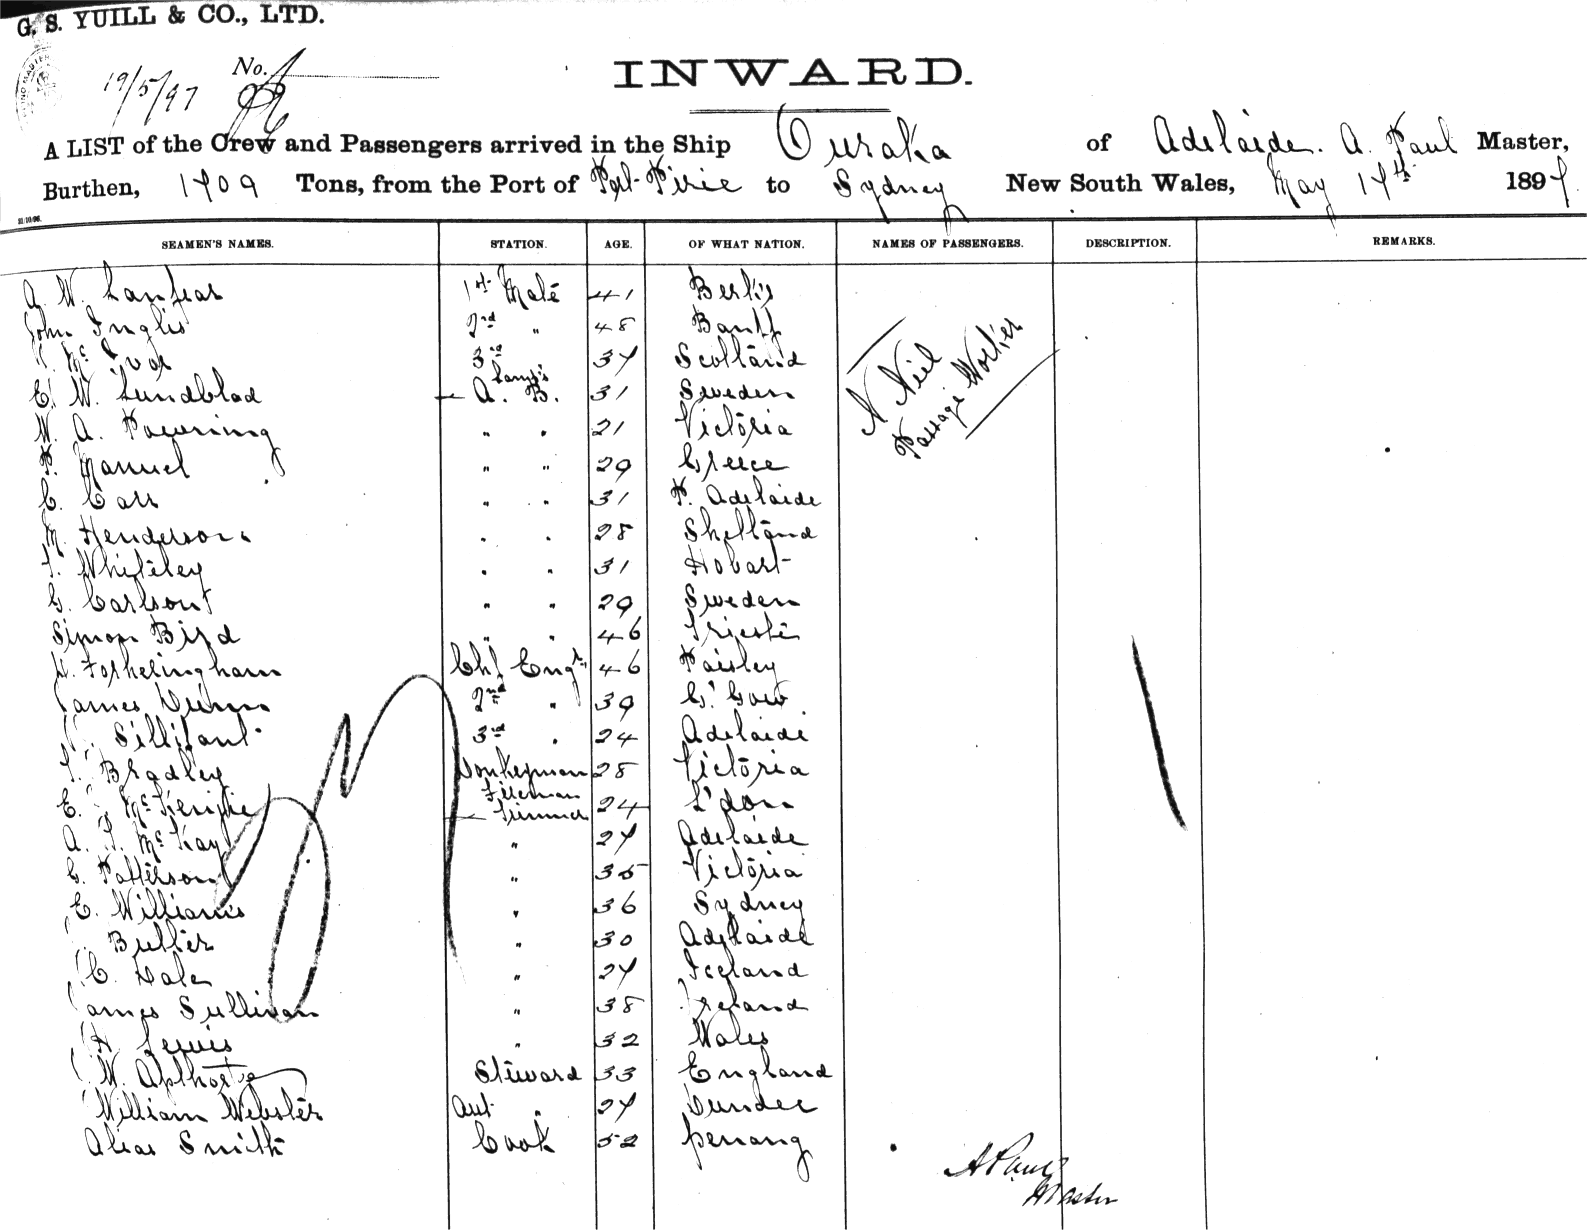 G. S. YUILL & CO., LTD.
19/5/97 No.
INWARD.
A LIST of the Crew and Passengers arrived in the Ship Ouraka of Adelaide. A. Paul Master,
Burthen, 1709 Tons, from the Port of Port Pirie to Sydney New South Wales, May 17th 1897.
21/10/96.
SEAMEN'S NAMES. STATION. AGE. OF WHAT NATION. NAMES OF PASSENGERS. DESCRIPTION. REMARKS.
A. W. Lanfear 1st Mate 41
John Inglis 2nd " 48 Banff
Mc Ivor 3rd 37 Scotland
E. W. Lundblad Lamps A. B. 31 Sweden
W. A. Powering " " 21 Victoria
P. Manuel " " 29 Greece
C. Carr " " 31 P. Adelaide
M. Henderson " " 28 Shetland
T. Whiteley " " 31 Hobart
G. Carlson " " 29 Sweden
Simon Bird " " 46 Trieste
Fotheringham Chf Engr 46 Paisley
James Dunn 2nd " 39 G'Gow
Sillifant 3rd " 24 Adelaide
T. Bradley Donkeyman 28 Victoria
E. McKenzie Fireman Trimmer 24 L'don
A. T. McKay " 27 Adelaide
G. Patterson " 35 Victoria
E. Williams " 36 Sydney
Butler " 30 Adelaide
C. Dale " 27 Iceland
James Sullivan " 38 Ireland
H. Lewis " 32 Wales
W. Steward 33 England
William Webster " 27 Dundee
Smith Cook 52 penang
N Neil
Passage Worker
A Paul
Master